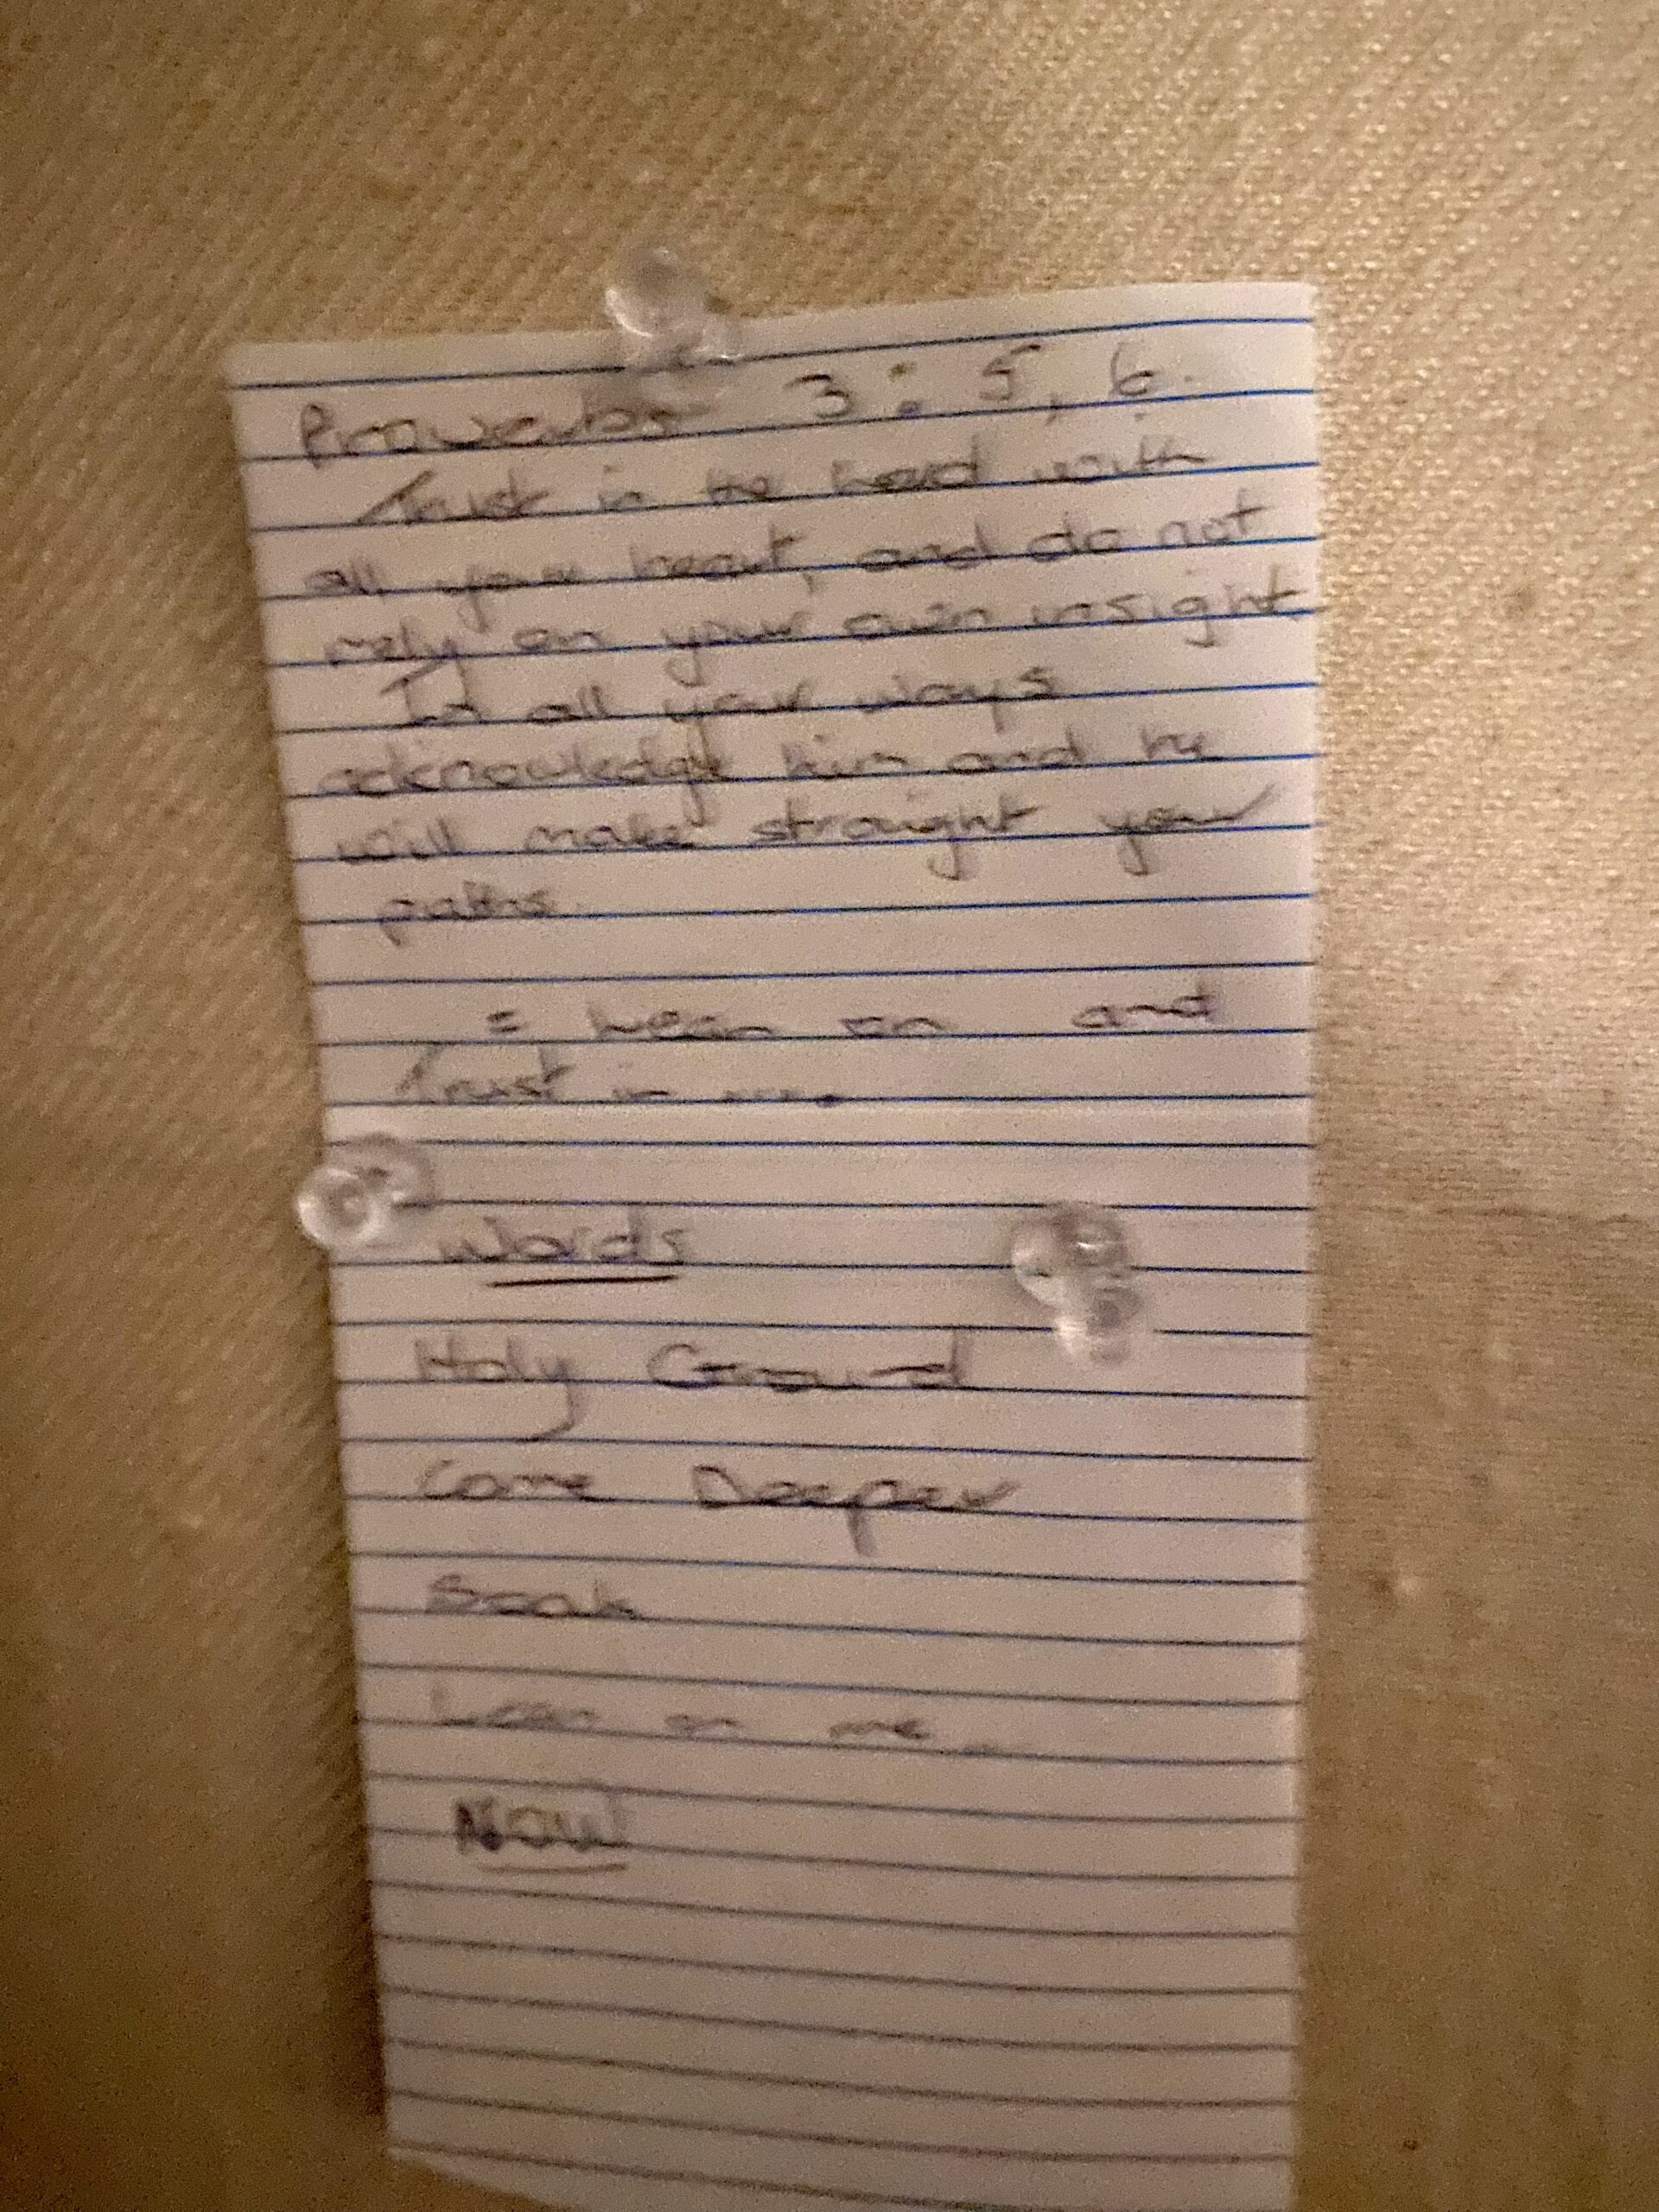 Proverbs 3 : 5, 6.
Trust in the Lord with
all your heart, and do not
rely on your own insight
In all your ways
acknowledge him and he
will make straight your
paths
= Lean on and
Trust in me.
Words
Holy Ground
Come Deeper
Soak
Lean on me
NOW